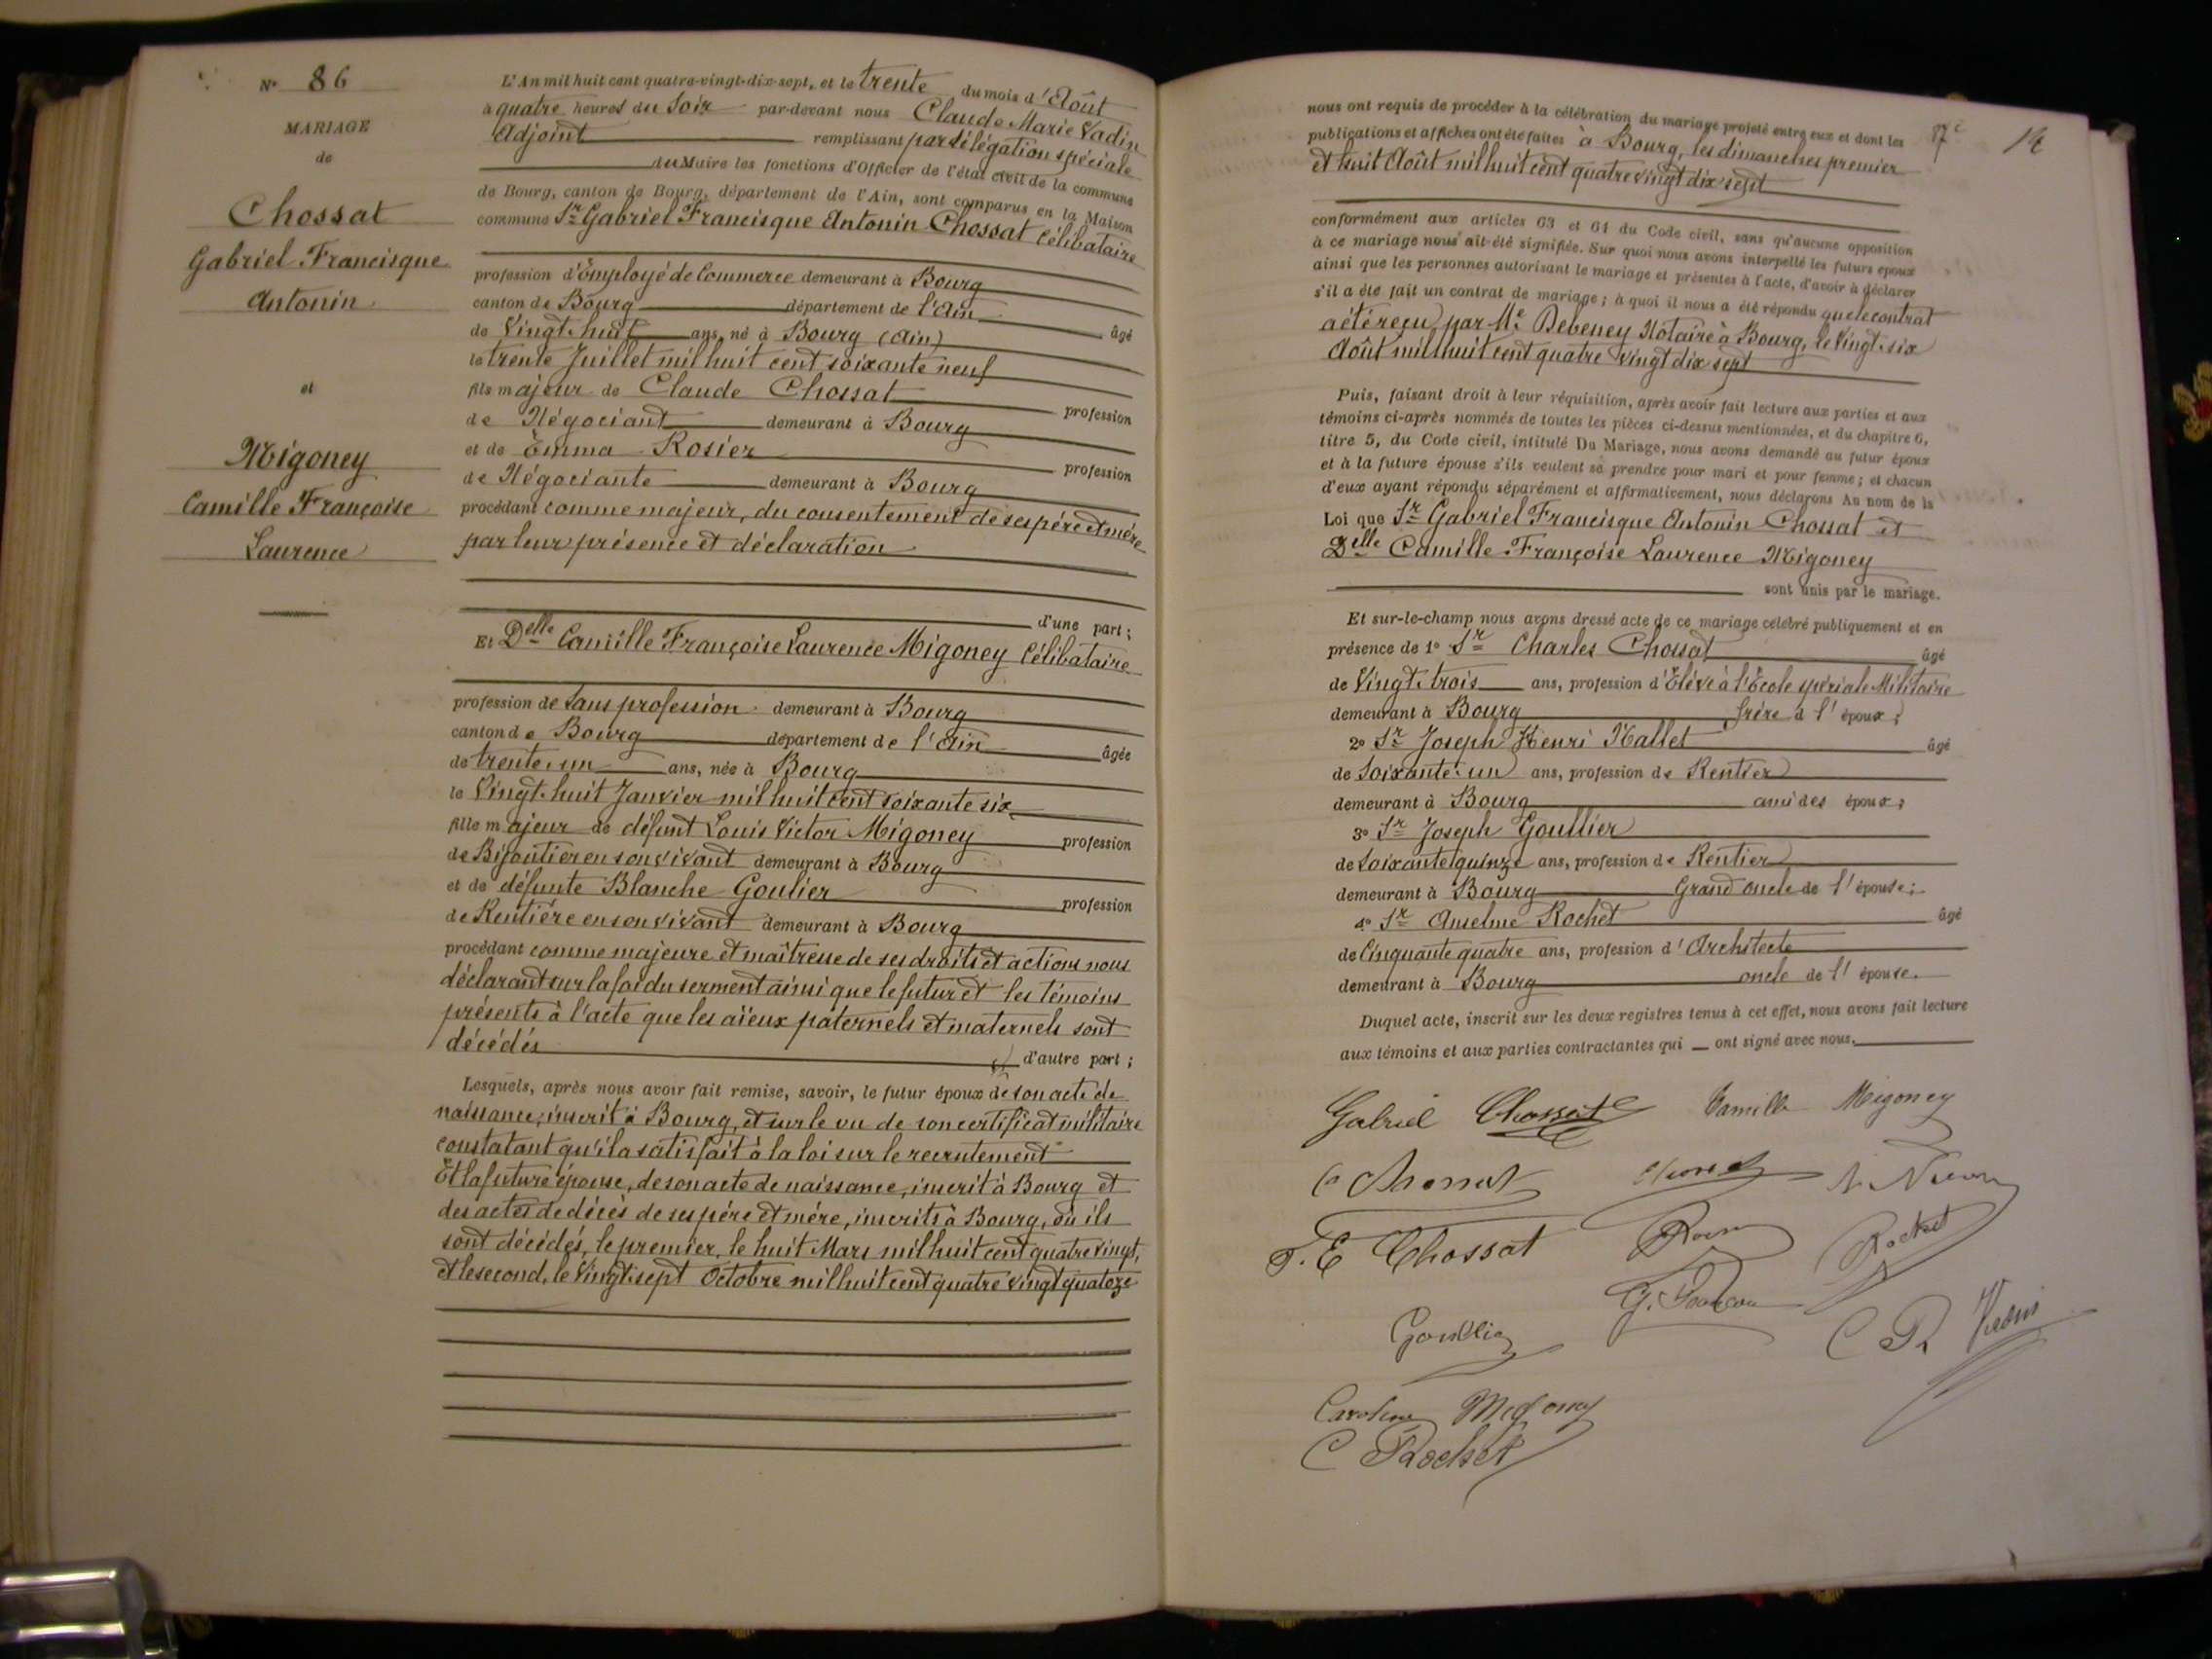 N° 86
MARIAGE
de
Chossat
Gabriel Francisque
Antonin
et
Migoney
Camille Françoise
Laurence
L'An mil huit cent quatre-vingt-dix-sept, et le trente du mois d'Août
à quatre heures du Soir par-devant nous Claude Marie Vadin
Adjoint remplissant par délégation spéciale
du Maire les fonctions d'Officier de l'état civil de la commune
de Bourg, canton de Bourg, département de l'Ain, sont comparus en la Maison
commune Sr Gabriel Francisque Antonin Chossat Célibataire
profession d'Employé de Commerce demeurant à Bourg
canton de Bourg département de l'Ain
de Vingt-huit ans, né à Bourg (Ain) âgé
le trente Juillet mil huit cent soixante neuf
fils majeur de Claude Chossat profession
de Négociant demeurant à Bourg
et de Emma Rosier profession
de Négociante demeurant à Bourg
procédant comme majeur, du consentement de ses père et mère
par leur présence et déclaration
d'une part;
Et Delle Camille Françoise Laurence Migoney Célibataire
profession de Sans profession demeurant à Bourg
canton de Bourg département de l'Ain
de trente-un ans, née à Bourg âgée
le Vingt-huit Janvier mil huit cent soixante six
fille majeur de défunt Louis Victor Migoney profession
de Bijoutier en son vivant demeurant à Bourg
et de défunte Blanche Goulier profession
de Rentière en son vivant demeurant à Bourg
procédant comme majeure et maîtresse de ses droits et actions nous
déclarant sur la foi du serment ainsi que le futur et les témoins
présents à l'acte que les aïeux paternels et maternels sont
décédés d'autre part;
Lesquels, après nous avoir fait remise, savoir, le futur époux de son acte de
naissance, inscrit à Bourg, et sur le vu de son certificat militaire
constatant qu'il a satisfait à la loi sur le recrutement
Et la future épouse, de son acte de naissance, inscrit à Bourg et
des actes de décès de ses père et mère, inscrits à Bourg, où ils
sont décédés, le premier, le huit Mars mil huit cent quatre vingt,
et le second, le Vingt-sept Octobre mil huit cent quatre vingt quatoze
nous ont requis de procéder à la célébration du mariage projeté entre eux et dont les
publications et affiches ont été faites à Bourg, les dimanches premier
et huit Août mil huit cent quatre vingt dix sept
conformément aux articles 63 et 64 du Code civil, sans qu'aucune opposition
à ce mariage nous ait été signifiée. Sur quoi nous avons interpellé les futurs époux
ainsi que les personnes autorisant le mariage et présentes à l'acte, d'avoir à déclarer
s'il a été fait un contrat de mariage; à quoi il nous a été répondu que le contrat
a été reçu par Me Debeney Notaire à Bourg, le Vingt-six
Août mil huit cent quatre vingt dix sept
Puis, faisant droit à leur réquisition, après avoir fait lecture aux parties et aux
témoins ci-après nommés de toutes les pièces ci-dessus mentionnées, et du chapitre 6,
titre 5, du Code civil, intitulé Du Mariage, nous avons demandé au futur époux
et à la future épouse s'ils veulent se prendre pour mari et pour femme; et chacun
d'eux ayant répondu séparément et affirmativement, nous déclarons Au nom de la
Loi que Sr Gabriel Francisque Antonin Chossat et
Delle Camille Françoise Laurence Migoney
sont unis par le mariage.
Et sur-le-champ nous avons dressé acte de ce mariage célébré publiquement et en
présence de 1° Sr Charles Chossat âgé
de Vingt-trois ans, profession d'Elève à l'Ecole spéciale Militaire
demeurant à Bourg frère d l'époux;
2° Sr Joseph Henri Nallet âgé
de Soixante-un ans, profession de Rentier
demeurant à Bourg ami des époux;
3° Sr Joseph Goullier
de Soixante quinze ans, profession de Rentier
demeurant à Bourg Grand oncle de l'épouse;
4° Sr Anselme Rochet âgé
de Cinquante quatre ans, profession d'Architecte
demeurant à Bourg oncle de l'épouse.
Duquel acte, inscrit sur les deux registres tenus à cet effet, nous avons fait lecture
aux témoins et aux parties contractantes qui ont signé avec nous.
Gabriel Chossat Camille Migoney
C Chossat
E Chossat Rochet
Goullier
Caroline Migoney
C Rochet